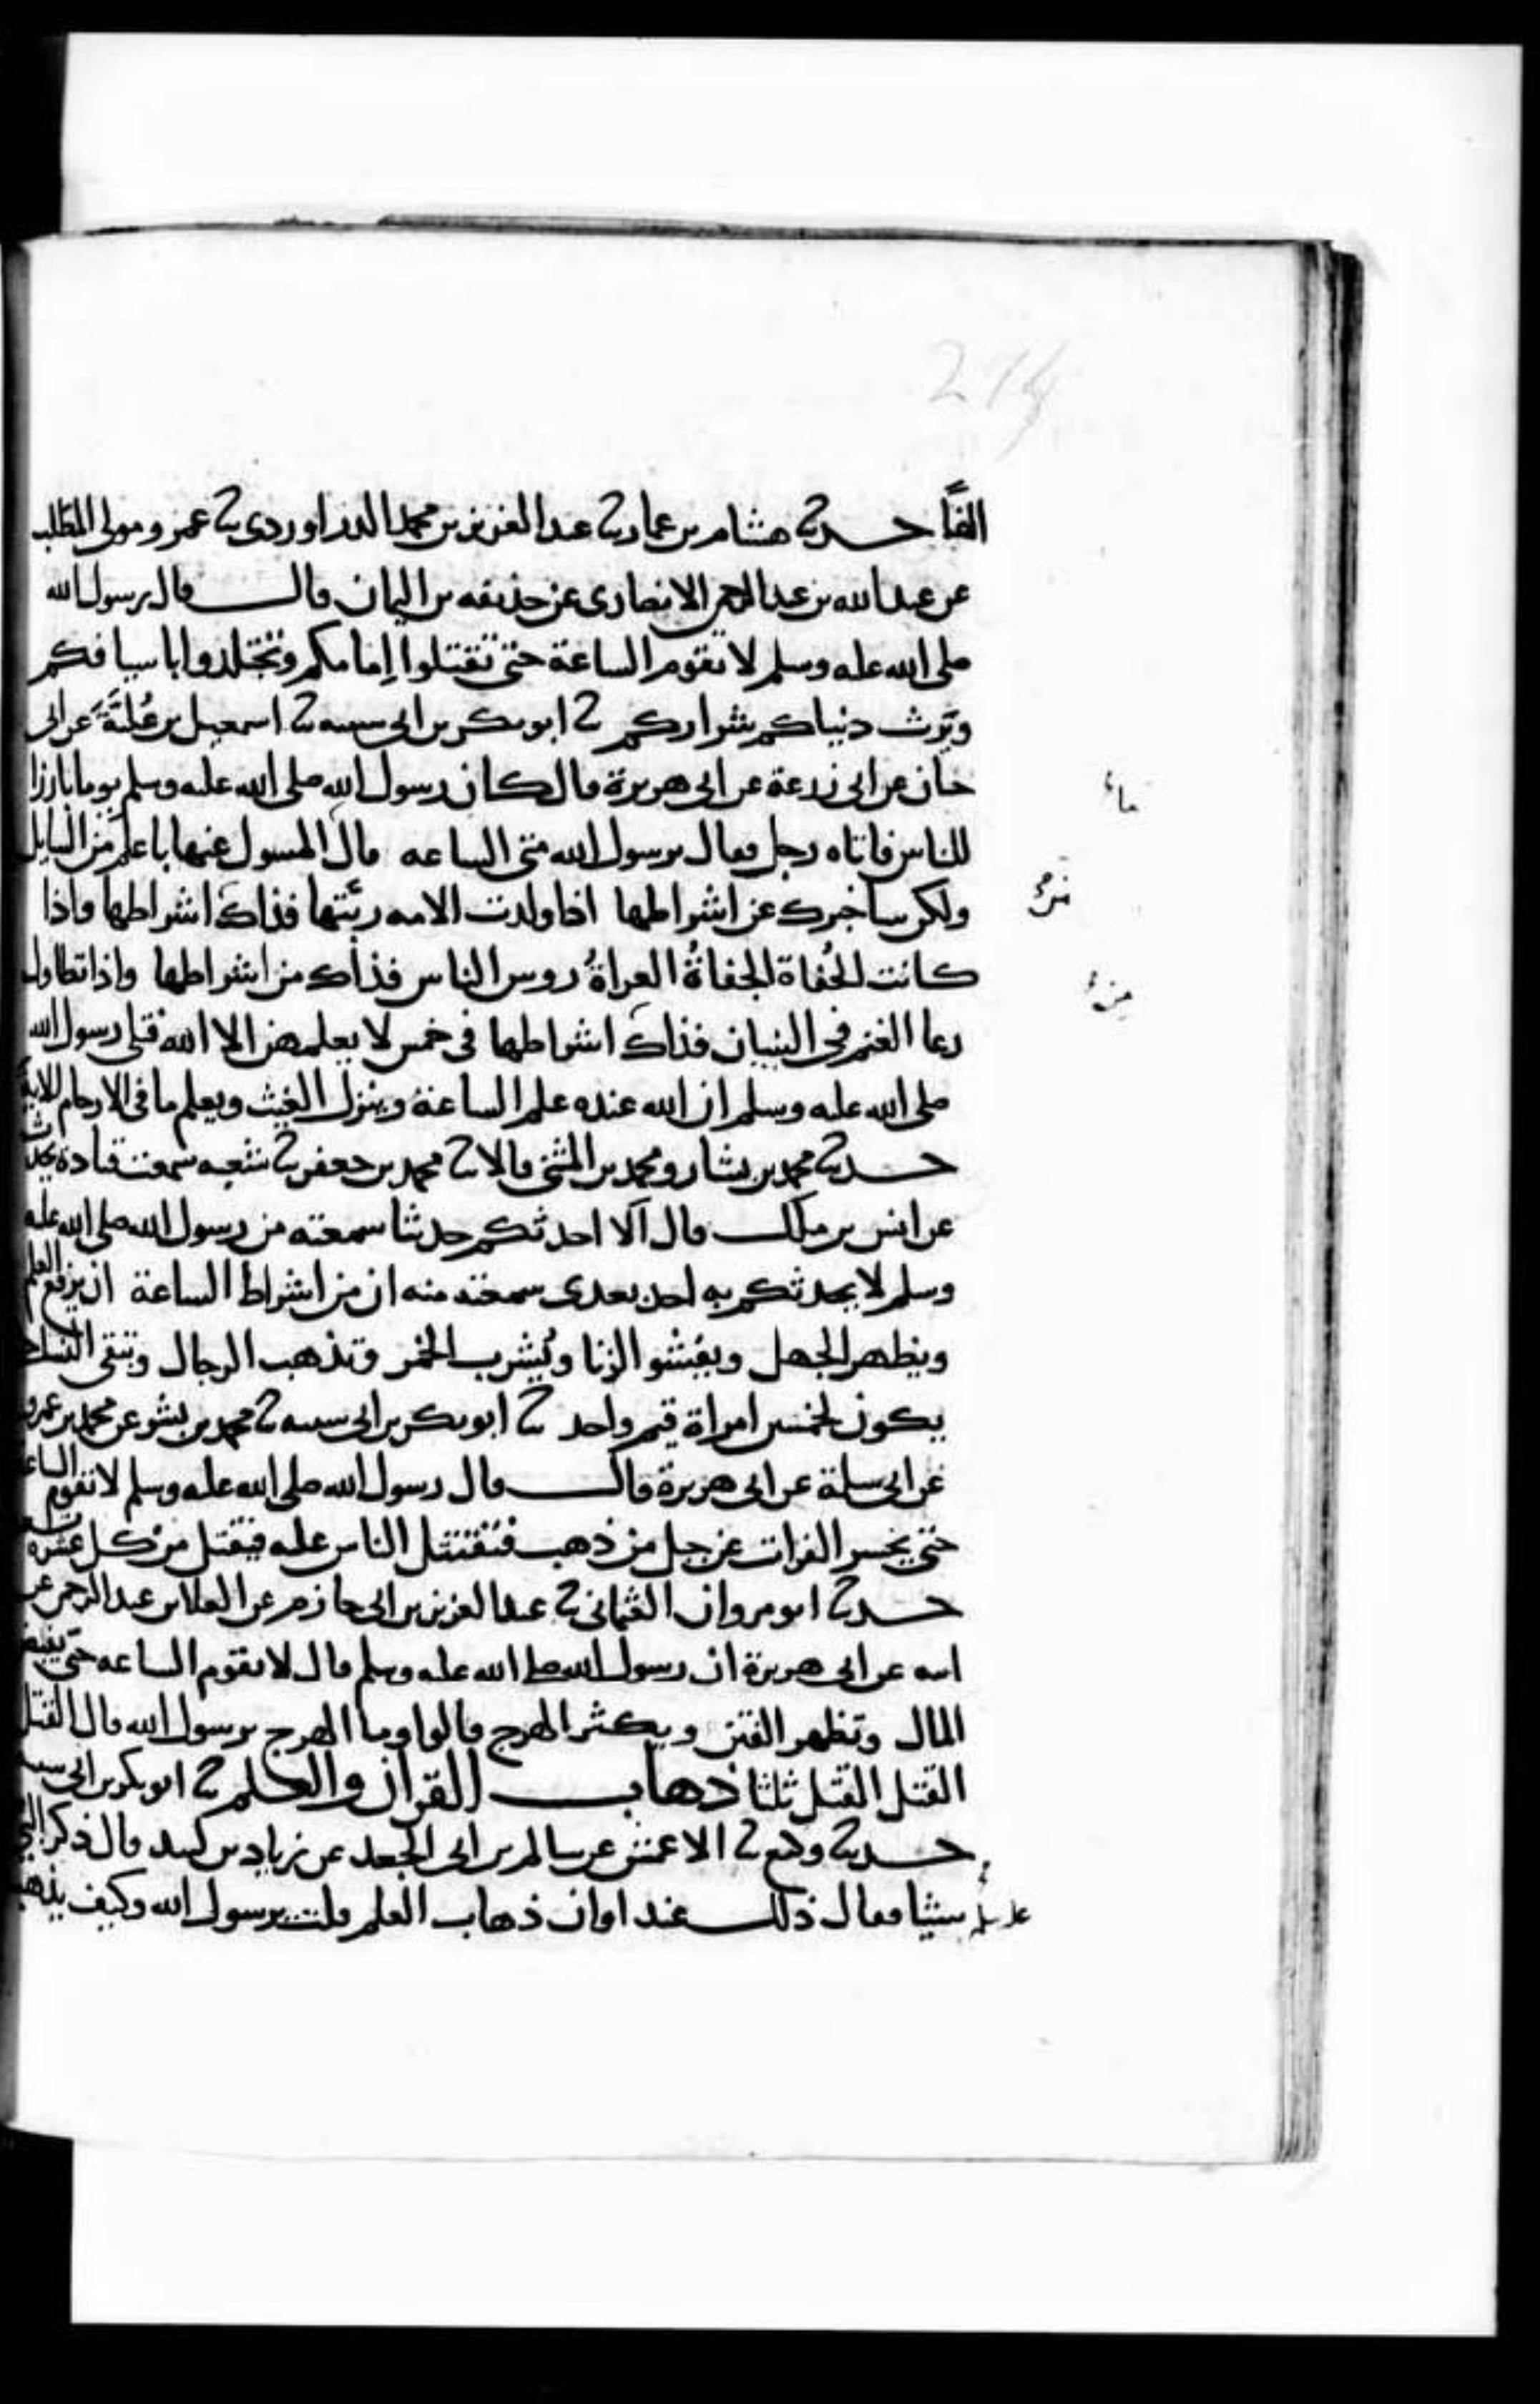 274
الفًا حدثنا هشام بن عمار ثنا عبد العزيز بن محمد الدراوردى ثنا عمرو مولى المطلب
عن عبد الله بن عبد الرحمن الانصارى عن حذيفه بن اليمان قال قال رسول الله
صلى الله عليه وسلم لا تقوم الساعة حتى تقتتلوا امامكم وتجتلدوا باسيافكم
وترث دنياكم شراركم ثنا ابو بكر بن ابى شيبه ثنا اسمعيل بن علية عن ابى
حيان عن ابى زرعة عن ابى هريرة قال كان رسول الله صلى الله عليه وسلم يوما بارزا
للناس فاتاه رجل فقال يرسول الله متى الساعه قال المسول عنها باعلم من السايل
ماء
ولكن ساخبرك عن اشراطها اذا ولدت الامه ربتها فذاك اشراطها واذا
من
كانت الحُفاة الجفاةُ العراةُ روس الناس فذاك من اشراطها واذا تطاول
من
رعا الغنم فى البنيان فذاك اشراطها فى خمس لا يعلمهن الا الله فتلى رسول الله
صلى الله عليه وسلم ان الله عنده علم الساعة وينزل الغيث ويعلم ما فى الارحام الاية
حدثنا محمد بن بشار ومحمد بن المثنى قالا ثنا محمد بن جعفر ثنا شعبه سمعت قتادة يحدث
عن انس بن ملك قال الا احدثكم حديثا سمعته من رسول الله صلى الله عليه
وسلم لا يحدثكم به احد بعدى سمعته منه ان من اشراط الساعة ان يرفع العلم
ويظهر الجهل ويفشوا الزنا ويُشرب الخمر وتذهب الرجال وتبقى النسا حتى
يكون لخمسين امراة قيم واحد ثنا ابو بكر بن ابى شيبه ثنا محمد بن بشر عن محمد بن عمرو
عن ابى سلمة عن ابى هريرة قال قال رسول الله صلى الله عليه وسلم لا تقوم الساعة
حتى يحسر الفرات عن جبل من ذهب فتقتتل الناس عليه فيقتل من كل عشرة
حدثنا ابو مروان العثمانى ثنا عبد العزيز بن ابى حازم عن العلا بن عبد الرحمن عن
ابيه عن ابى هريرة ان رسول الله صلى الله عليه وسلم قال لا تقوم الساعه حتى يفيض
المال وتظهر الفتن ويكثر الهرج قالوا وما الهرج يرسول الله قال القتل
القتل القتل ثلثا ذهاب القران والعلم ثنا ابو بكر بن ابى شيبه
حدثنا وكيع ثنا الاعمش عن سالم بن ابى الجعد عن زياد بن لبيد قال ذكر النبى
شيئا فقال ذلك عند اوان ذهاب العلم قلت يرسول الله وكيف يذهب